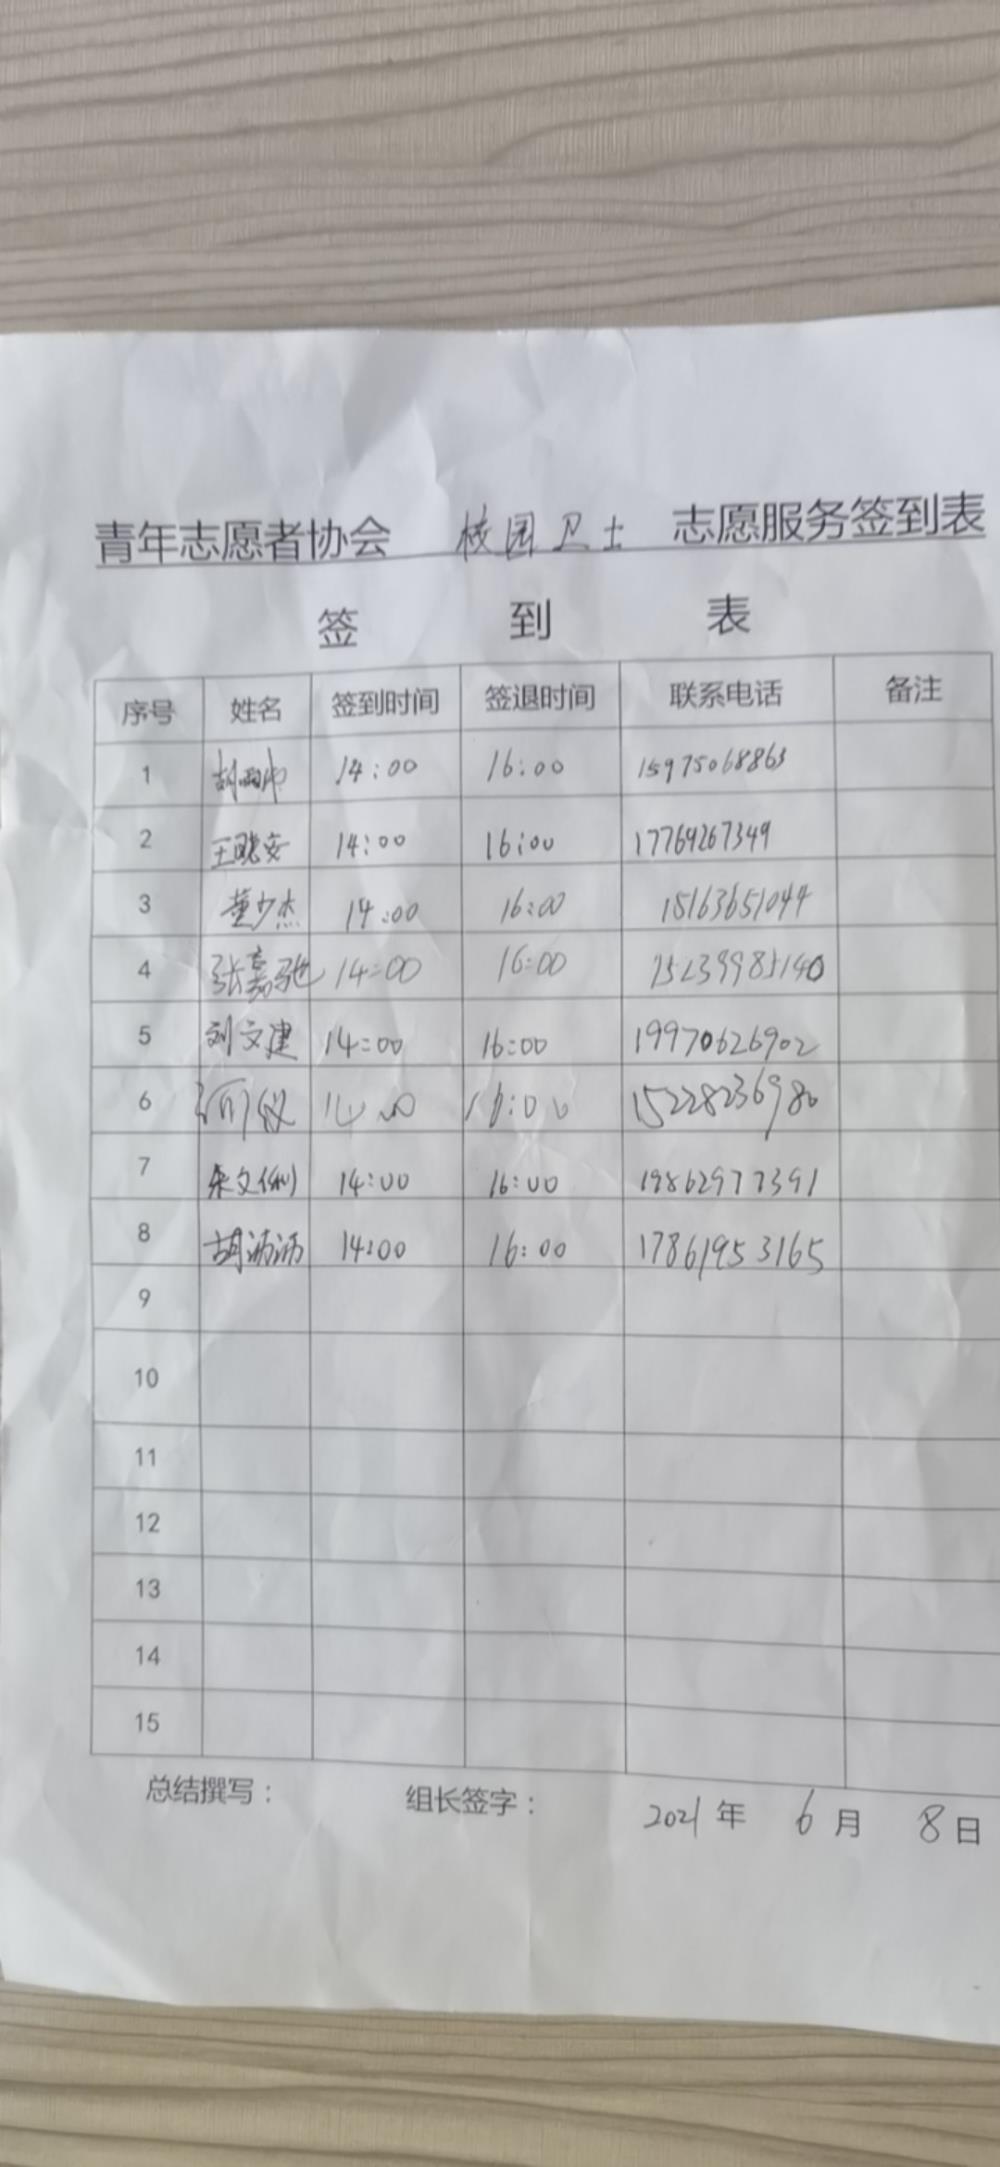 青年志愿者协会 校园卫士 志愿服务签到表
签 到 表
序号 姓名 签到时间 签退时间 联系电话 备注
1 14:00 16:00 15975068863
2 王晓安 14:00 16:00 17769267349
3 董少杰 14:00 16:00 15163651044
4 张嘉驰 14:00 16:00 15239985140
5 刘文建 14:00 16:00 19970626902
6 16:00 15228236980
7 朱文 14:00 16:00 19862977391
8 胡沛沛 14:00 16:00 17861953165
9
10
11
12
13
14
15
总结撰写： 组长签字： 2021年 6月 8日